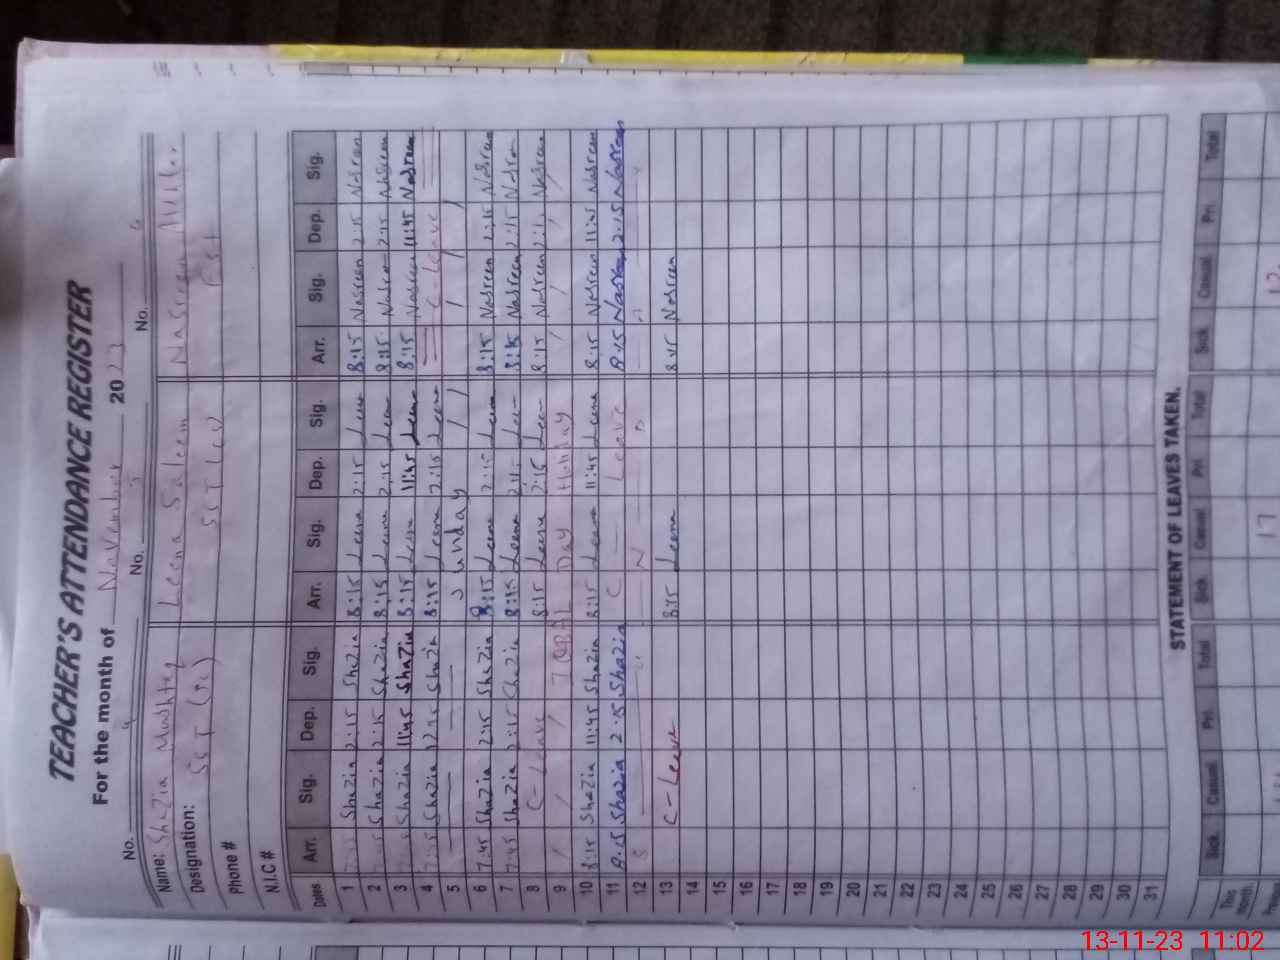 TEACHER'S ATTENDANCE REGISTER
For the month of November 2023
No. 4 No. 5 No. 6
Name: Shazia Mushtaq Leena Saleem Nasreen Akhter
Designation: SST (sc) SST (ev) PST
Phone #
N.I.C #
Dates Arr. Sig. Dep. Sig. Arr. Sig. Dep. Sig. Arr. Sig. Dep. Sig.
1 7:45 Shazia 2:15 Shazia 8:15 Leena 2:15 Leena 8:15 Nasreen 2:15 Nasreen
2 7:45 Shazia 2:15 Shazia 8:15 Leena 2:15 Leena 8:15 Nasreen 2:15 Nasreen
3 7:45 Shazia 11:45 Shazia 8:15 Leena 11:45 Leena 8:15 Nasreen 11:45 Nasreen
4 7:45 Shazia 12:15 Shazia 8:15 Leena 2:15 Leena C-Leave
5 Sunday
6 7:45 Shazia 2:15 Shazia 8:15 Leena 2:15 Leena 8:15 Nasreen 2:15 Nasreen
7 7:45 Shazia 2:15 Shazia 8:15 Leena 2:15 Leena 8:15 Nasreen 2:15 Nasreen
8 C-Leave 8:15 Leena 2:15 Leena 8:15 Nasreen 2:15 Nasreen
9 IQBAL Day Holiday
10 8:15 Shazia 11:45 Shazia 8:15 Leena 11:45 Leena 8:15 Nasreen 11:45 Nasreen
11 8:15 Shazia 2:15 Shazia C Leave 8:15 Nasreen 2:15 Nasreen
12 S U N D
13 C-Leave 8:15 Leena 8:15 Nasreen
14
15
16
17
18
19
20
21
22
23
24
25
26
27
28
29
30
31
STATEMENT OF LEAVES TAKEN.
Sick Casual Pri. Total Sick Casual Pri Total Sick Casual Pri. Total
This month
17 12
13-11-23 11:02